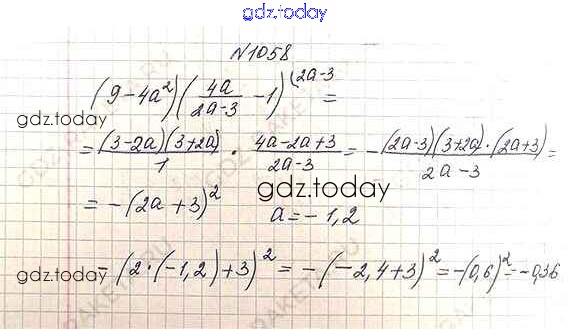 gdz.today
N1058
(9-4a²)(4a/(2a-3) -1)(2a-3 =
gdz.today
= (3-2a)(3+2a)/1 · (4a-2a+3)/(2a-3) = -(2a-3)(3+2a)·(2a+3)/(2a-3) =
= -(2a+3)² a=-1,2
gdz.today
-(2·(-1,2)+3)² = -(-2,4+3)² = -(0,6)² = -0,36
gdz.today